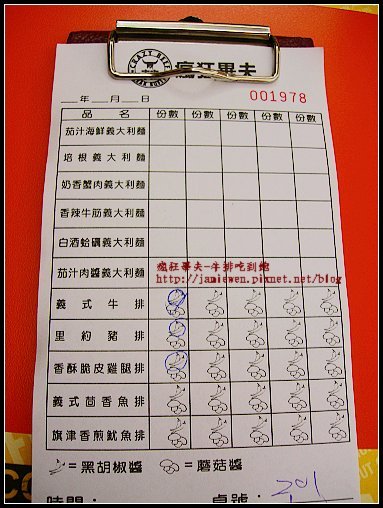 CRAZY BEEF
瘋狂畢夫
__年__月__日
001978
品名 份數 份數 份數 份數 份數
茄汁海鮮義大利麵
培根義大利麵
奶香蟹肉義大利麵
香辣牛筋義大利麵
白酒蛤蠣義大利麵
茄汁肉醬義大利麵
瘋狂畢夫-牛排吃到飽
http://jamiewen.pixnet.net/blog
義式牛排
里約豬排
香酥脆皮雞腿排
義式茴香魚排
旗津香煎魷魚排
=黑胡椒醬 =蘑菇醬
時間： 桌號：201